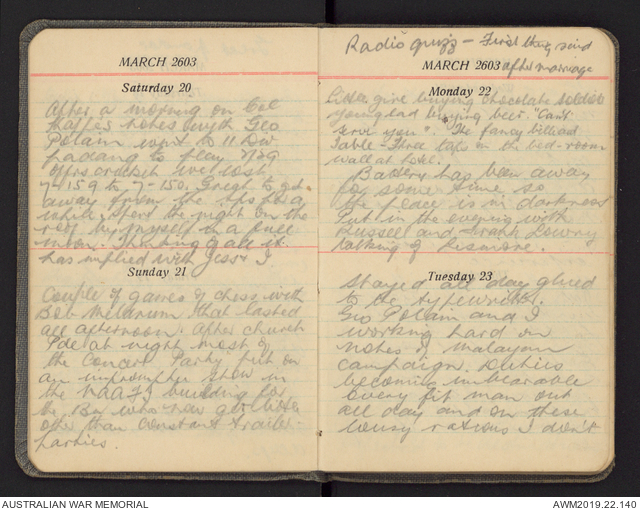 MARCH 2603
Saturday 20
After a morning on Col
notes with Geo
Polain went to 11 Div
padang to play 2/29
offrs cricket
7-159 to 7-150. Great to get
away from the for a
while. Spent the night on the
roof by myself in a full
moon. Thinking of all it
has implied with Jess & I
Sunday 21
Couple of games of chess with
Bob that lasted
all afternoon. After church
Pde at night most of
the Concert Party put on
an impromptu show in
the NAAFI building for
the Boys who now get little
other than constant trailer
parties.
Radio quizz - First thing said
after marriage
MARCH 2603
Monday 22
give buying chocolate soldier
you glad buying beer. "Can't
serve you". The fancy billiard
Table - Three taps in the bed-room
wall at hotel.
Battery has been away
for some time so
the place is in darkness
Put in the evening with
Russell and Frank Lowry
talking of Lismore.
Tuesday 23
Stayed all day glued
to the typewriter.
Geo Polain and I
working hard on
notes of Malayan
campaign. Duties
becoming unbearable
Every fit man out
all day and on these
lousy rations I don't
AUSTRALIAN WAR MEMORIAL
AWM2019.22.140